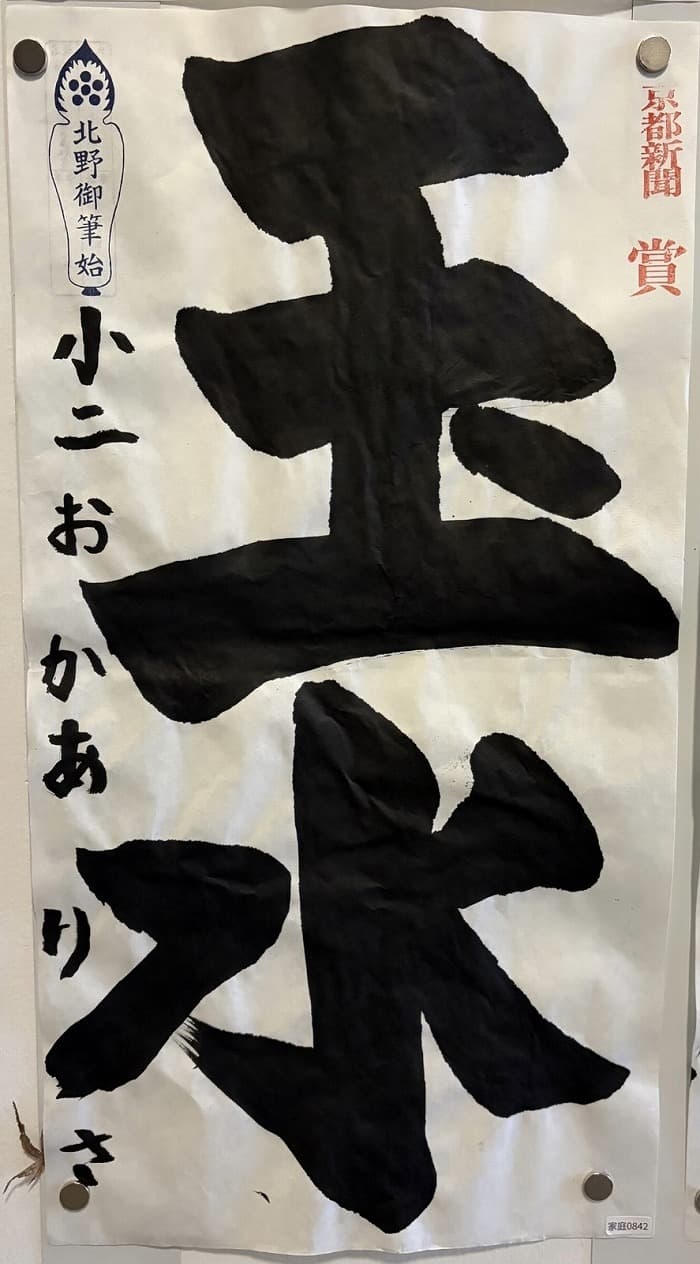 京都新聞 賞
玉水
北野御筆始
小二 おか ありさ
家庭0842